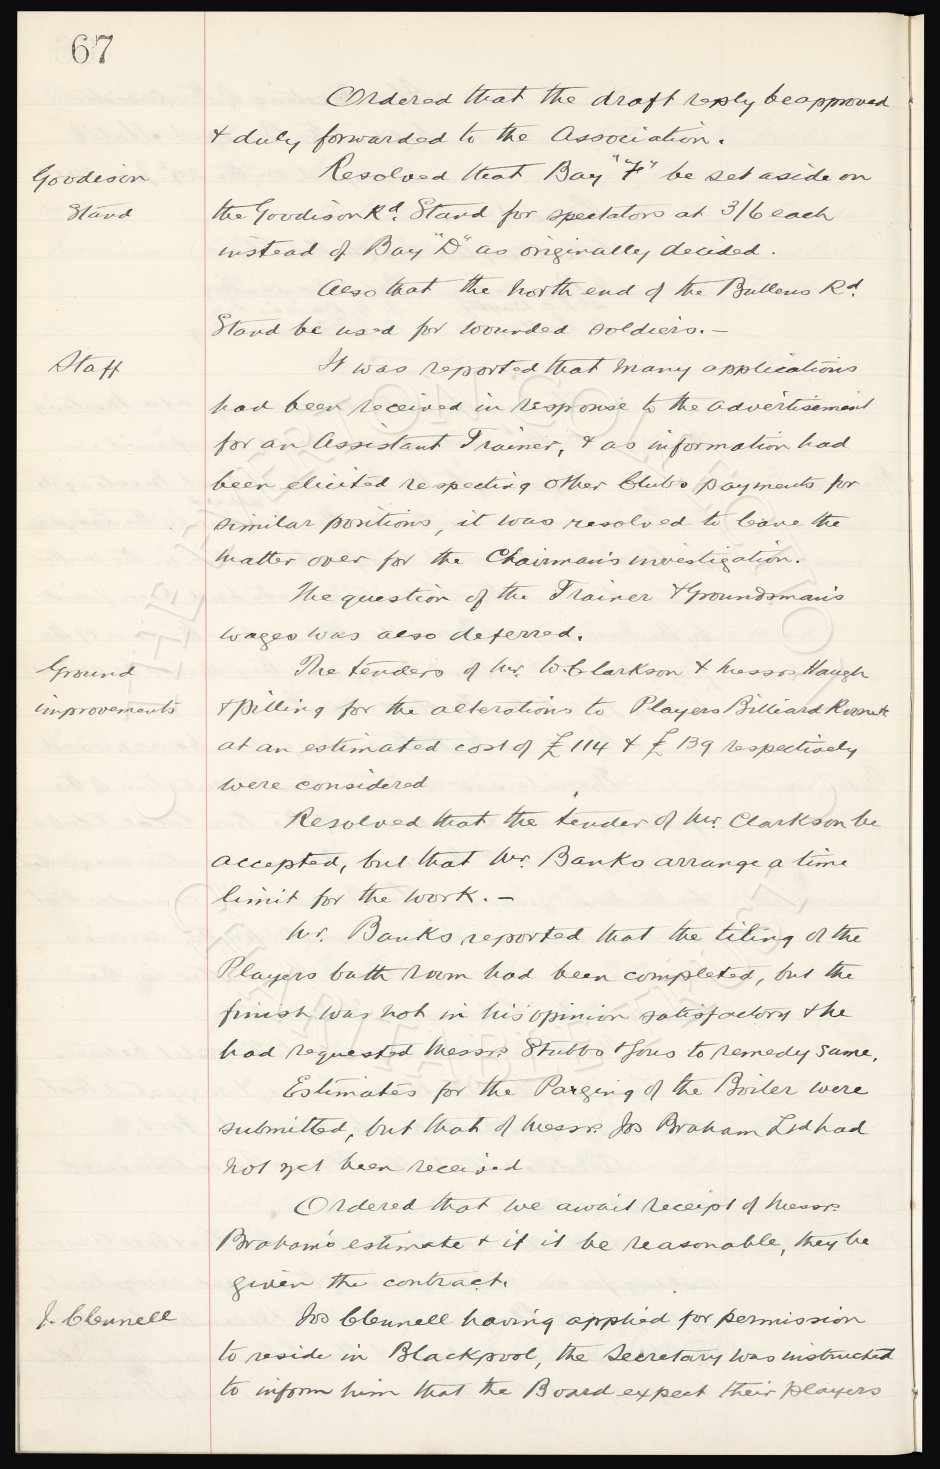 67
Ordered that the draft reply be approved
& duly forwarded to the Association.
Goodison Stand
Resolved that Bay "F" be set aside on
the Goodison Rd. Stand for spectators at 3/6 each
instead of Bay "D" as originally decided.
Also that the North end of the Bullens Rd.
Stand be used for wounded soldiers. —
Staff
It was reported that many applications
had been received in response to the advertisement
for an Assistant Trainer, & as information had
been elicited respecting other Clubs payments for
similar positions, it was resolved to leave the
matter over for the Chairman's investigation.
The question of the Trainer & Groundsman's
wages was also deferred.
Ground improvements
The tenders of Mr. W. Clarkson & Messrs Haugh
& Pilling for the alterations to Players Billiard Room
at an estimated cost of £114 & £139 respectively
were considered
Resolved that the tender of Mr. Clarkson be
accepted, but that Mr. Banks arrange a time
limit for the work. —
Mr. Banks reported that the tiling of the
Players bath room had been completed, but the
finish was not in his opinion satisfactory & he
had requested Messrs Stubbs & Sons to remedy same.
Estimates for the Parging of the Boiler were
submitted, but that of Messrs Jos Braham Ltd had
not yet been received
Ordered that we await receipt of Messrs
Braham's estimate & if it be reasonable, they be
given the contract.
J. Clennell
Jos Clennell having applied for permission
to reside in Blackpool, the Secretary was instructed
to inform him that the Board expect their players